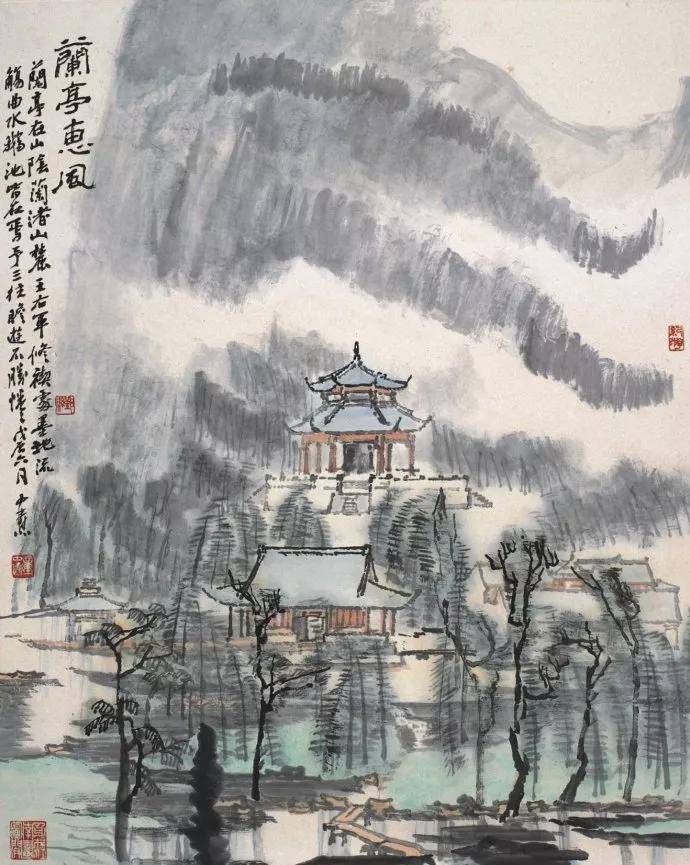 蘭亭惠風
蘭亭在山陰蘭渚山麓王右軍修禊處墨池流
觴曲水鵝池皆在焉予三往瞻遊不勝惓惓戊辰六月